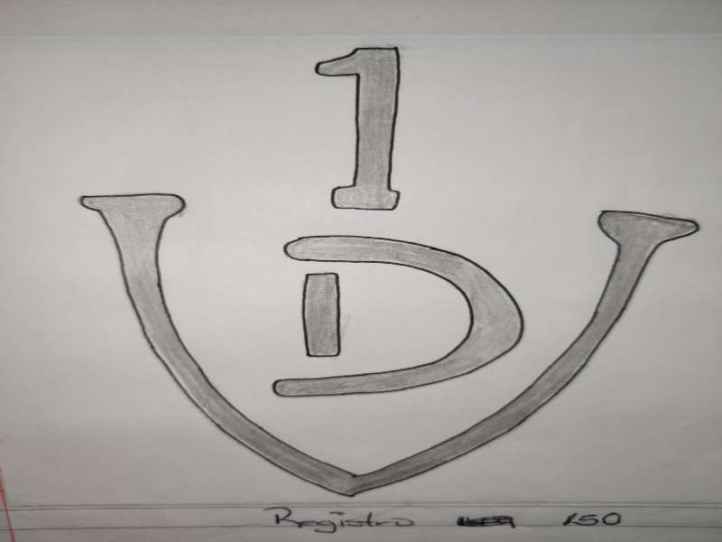 1
D
Registro 150